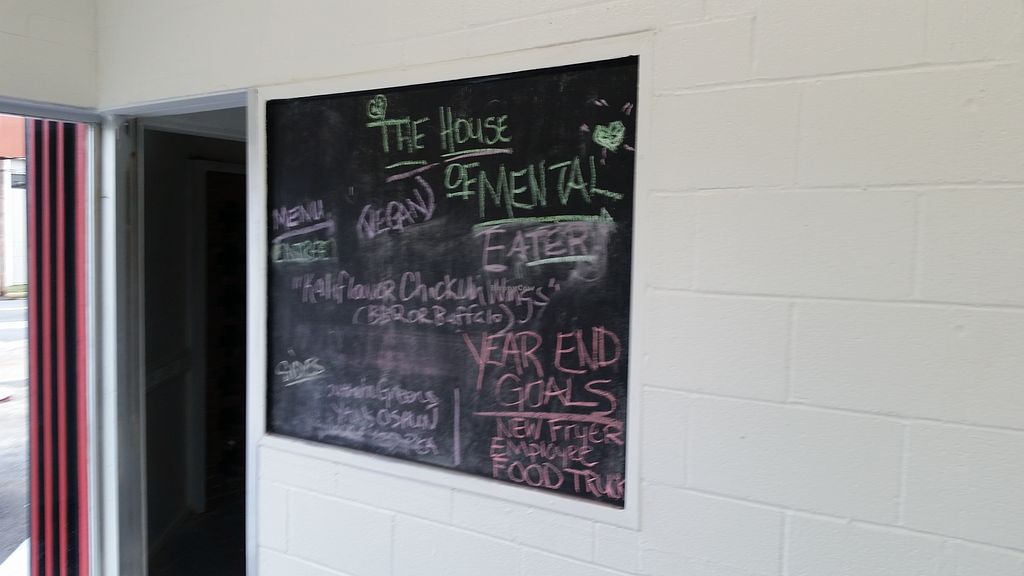 THE HOUSE
OF MENTAL
EATER!
MENU
(VEGAN)
"Kaliflower Chickun Wings"
(BBQ OR Buffalo)
SIDES
YEAR END
GOALS
NEW FRYER
EMPLOYEE
FOOD TRUCK
HappyCow